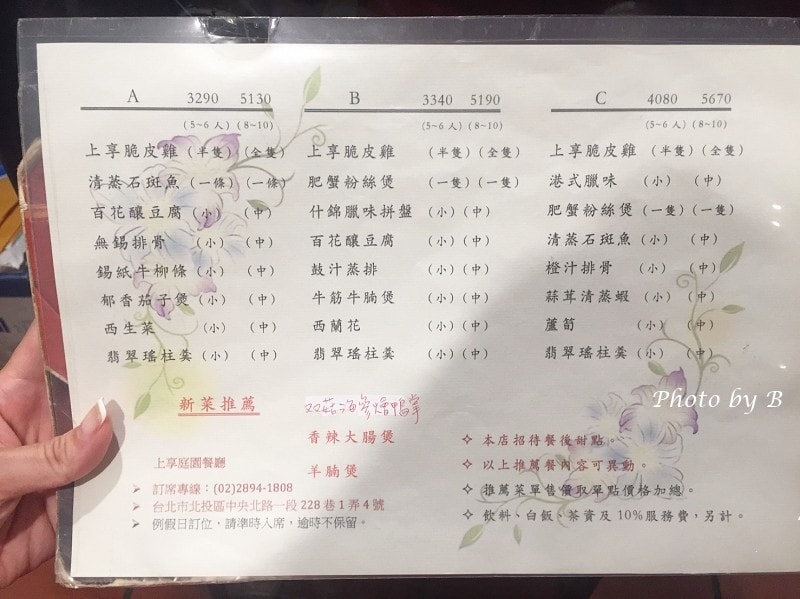 A 3290 5130
(5~6 人) (8~10)
上享脆皮雞 (半隻) (全隻)
清蒸石斑魚 (一條) (一條)
百花釀豆腐 (小) (中)
無錫排骨 (小) (中)
錫紙牛柳條 (小) (中)
郁香茄子煲 (小) (中)
西生菜 (小) (中)
翡翠瑤柱羹 (小) (中)
B 3340 5190
(5~6 人) (8~10)
上享脆皮雞 (半隻) (全隻)
肥蟹粉絲煲 (一隻) (一隻)
什錦臘味拼盤 (小) (中)
百花釀豆腐 (小) (中)
鼓汁蒸排 (小) (中)
牛筋牛腩煲 (小) (中)
西蘭花 (小) (中)
翡翠瑤柱羹 (小) (中)
C 4080 5670
(5~6 人) (8~10)
上享脆皮雞 (半隻) (全隻)
港式臘味 (小) (中)
肥蟹粉絲煲 (一隻) (一隻)
清蒸石斑魚 (小) (中)
橙汁排骨 (小) (中)
蒜茸清蒸蝦 (小) (中)
蘆筍 (小) (中)
翡翠瑤柱羹 (小) (中)
新菜推薦
双菇海參燴鴨掌
香辣大腸煲
羊腩煲
上享庭園餐廳
➤ 訂席專線：(02)2894-1808
➤ 台北市北投區中央北路一段 228 巷 1 弄 4 號
➤ 例假日訂位，請準時入席，逾時不保留。
✧ 本店招待餐後甜點。
✧ 以上推薦餐內容可異動。
✧ 推薦菜單售價取單點價格加總。
✧ 飲料、白飯、茶資及 10%服務費，另計。
Photo by B